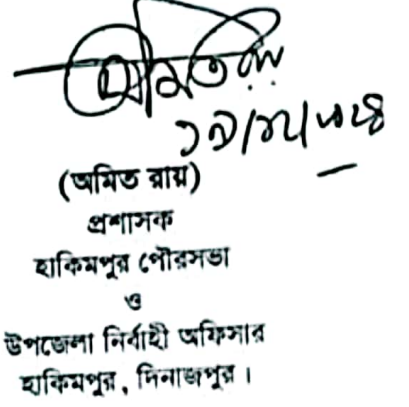 অমিত রায়
(অমিত রায়)
প্রশাসক
হাকিমপুর পৌরসভা
ও
উপজেলা নির্বাহী অফিসার
হাকিমপুর, দিনাজপুর।